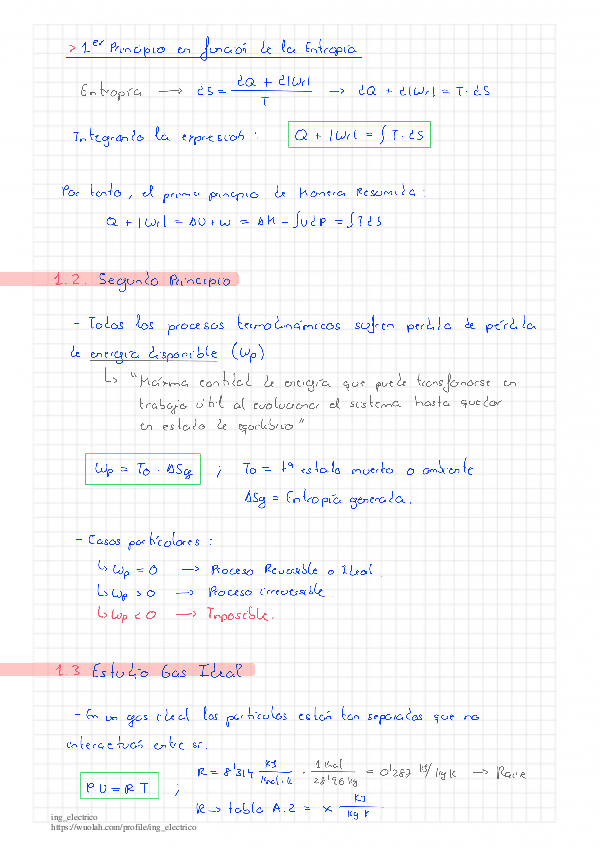 > 1er Principio en función de la Entropía
Entropía → dS = (dQ + d|Wr|) / T → dQ + d|Wr| = T · dS
Integrando la expresión : Q + |Wr| = ∫ T · dS
Por tanto, el primer principio de Manera Resumida :
Q + |Wr| = ΔU + W = ΔH - ∫UdP = ∫TdS
1.2. Segundo Principio
- Todos los procesos termodinámicos sufren perdida de pérdida
de energía disponible (Wp)
↳ "Máxima cantidad de energía que puede transformarse en
trabajo útil al evolucionar el sistema hasta quedar
en estado de equilibrio"
Wp = To · ΔSg ; To = tª estado muerto o ambiente
ΔSg = Entropía generada.
- Casos particulares :
↳ Wp = 0 → Proceso Reversible o Ideal.
↳ Wp > 0 → Proceso irreversible
↳ Wp < 0 → Imposible.
1.3 Estudio Gas Ideal
- En un gas ideal las partículas están tan separadas que no
interactúan entre sí.
PU = RT ; R = 8'314 KJ/Kmol·K · 1 Kmol/28'96 Kg = 0'287 KJ/KgK → Raire
R → tabla A.2 = x KJ/Kg K
ing_electrico
https://wuolah.com/profile/ing_electrico